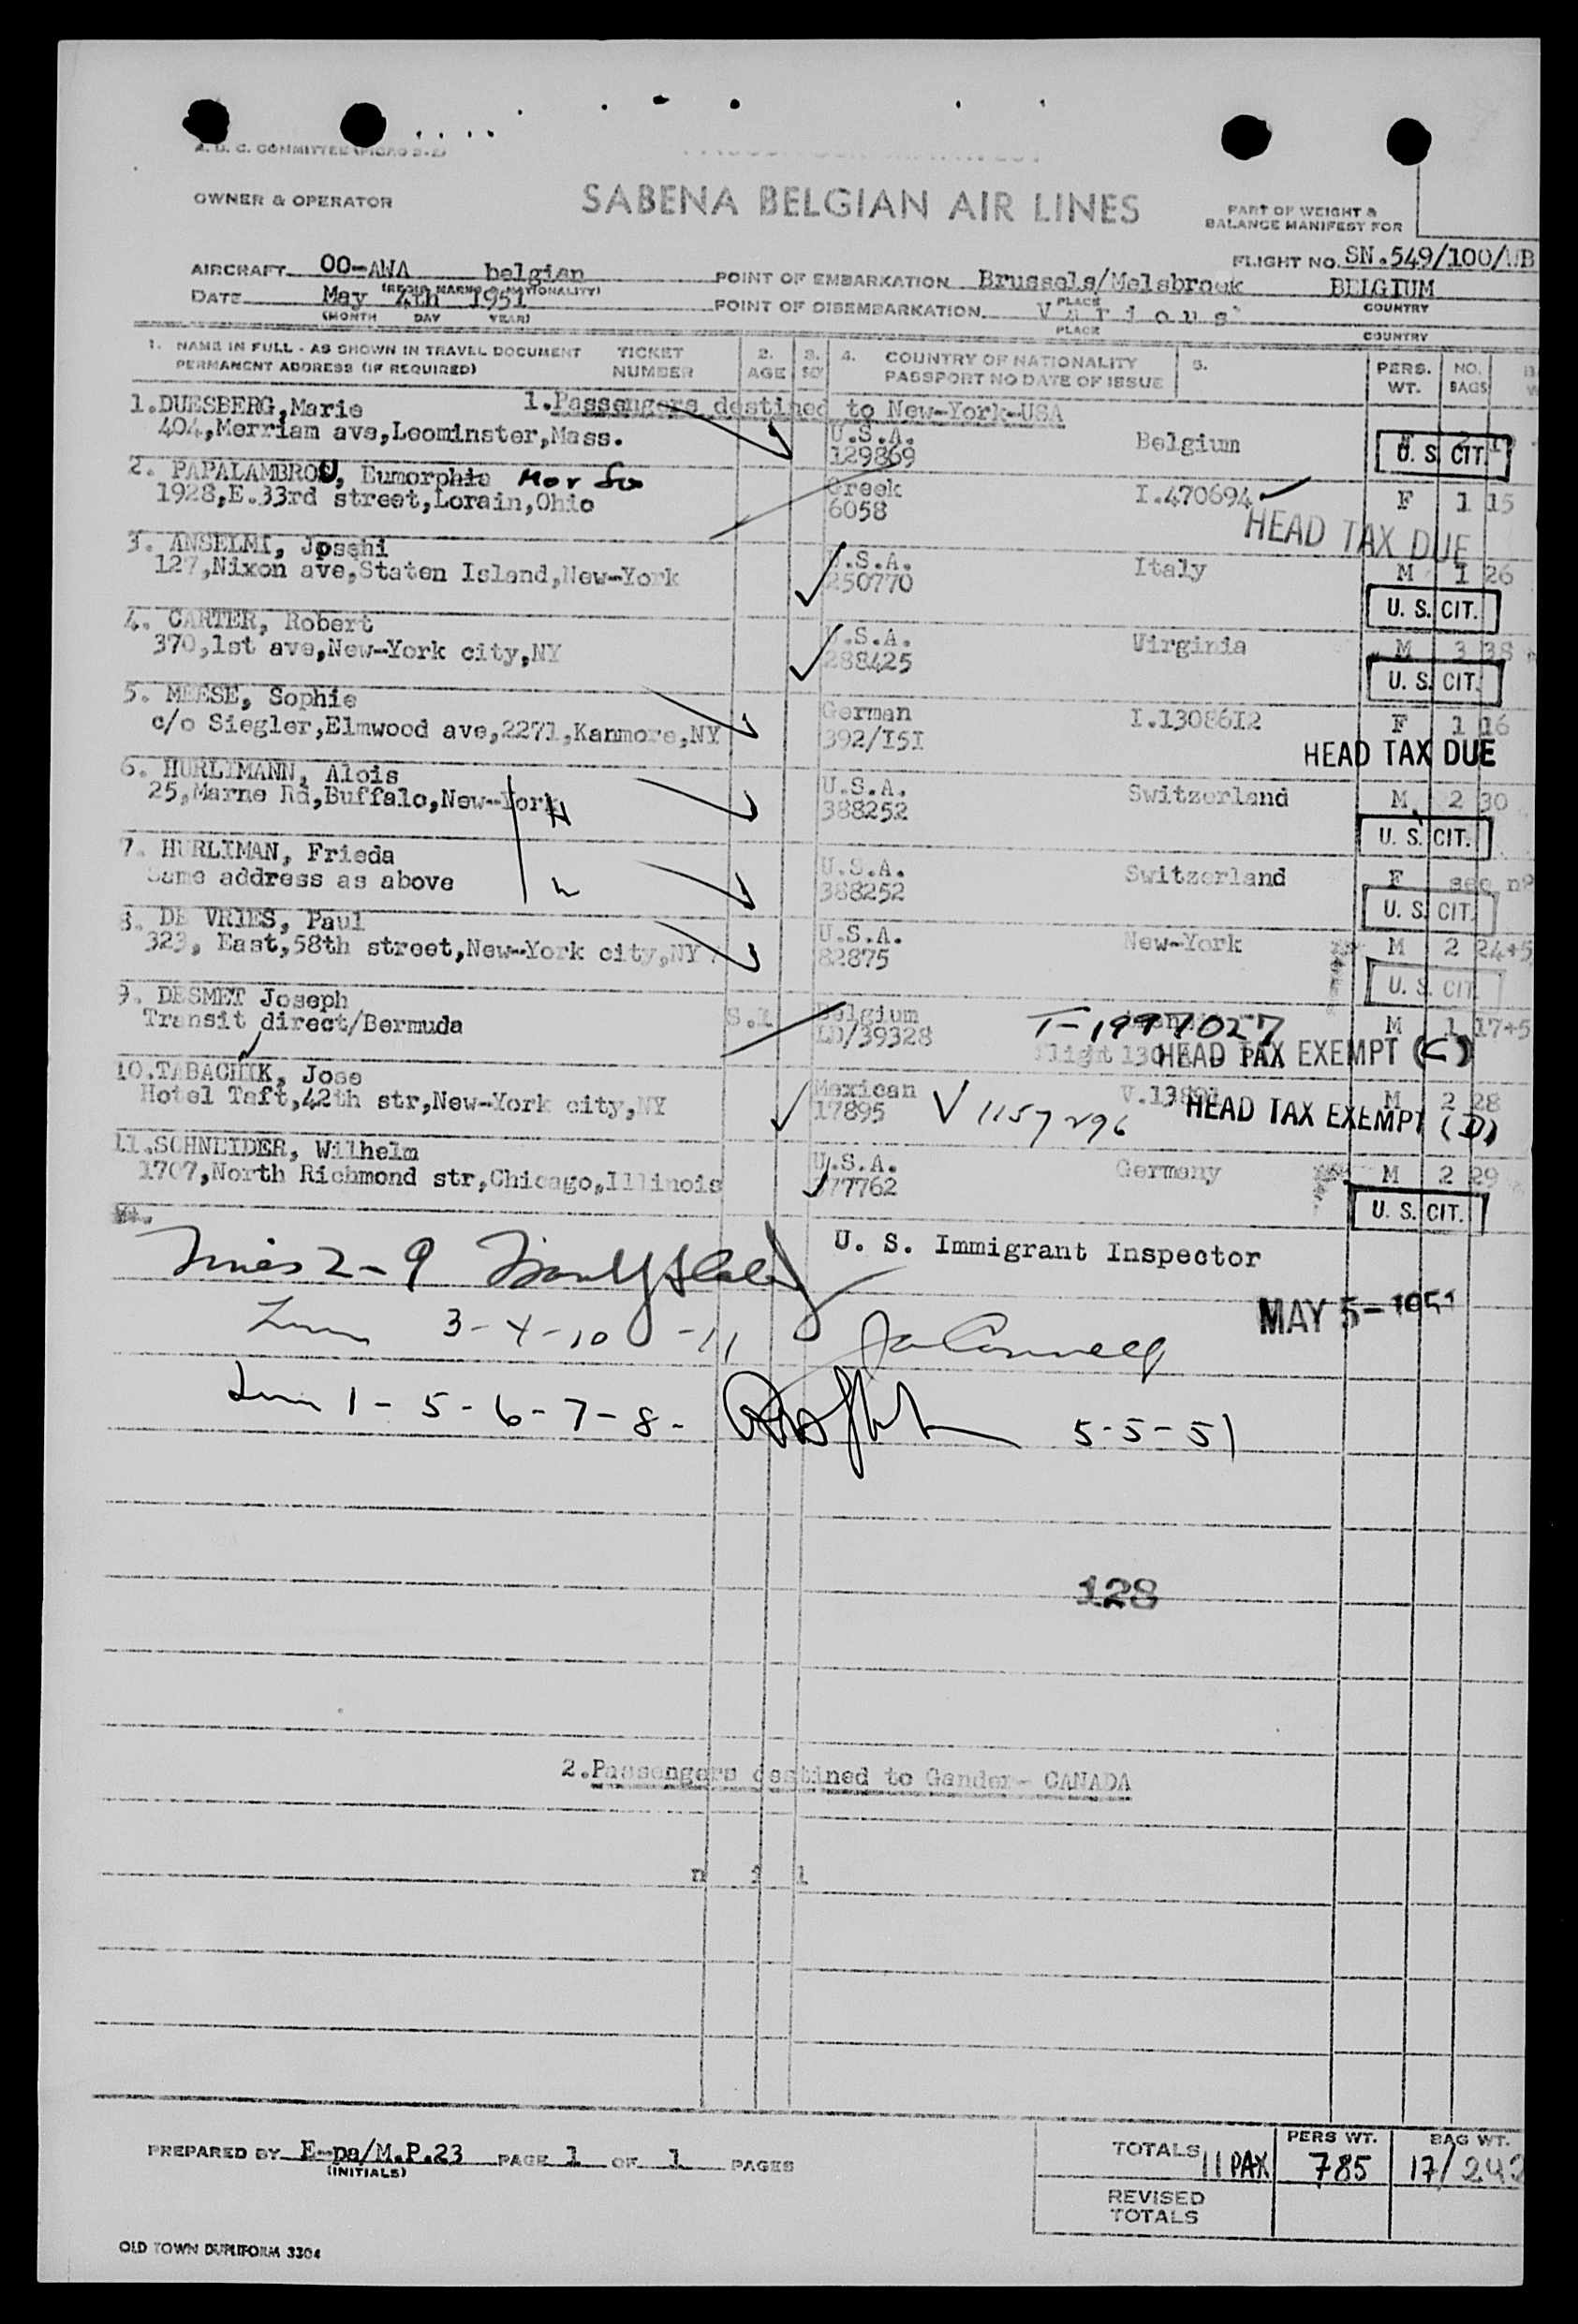 A. U. C. COMMITTEE (MICAO 2-2)
OWNER & OPERATOR
SABENA BELGIAN AIR LINES
PART OF WEIGHT &
BALANCE MANIFEST FOR
FLIGHT NO. SN.549/100/
AIRCRAFT 00-AWA belgian
(REGIS MARKS & NATIONALITY)
POINT OF EMBARKATION Brussels/Melsbroek BELGIUM
PLACE COUNTRY
DATE May 4th 1951
(MONTH DAY YEAR)
POINT OF DISEMBARKATION. Various
PLACE COUNTRY
1. NAME IN FULL - AS SHOWN IN TRAVEL DOCUMENT TICKET 2. 3. 4. COUNTRY OF NATIONALITY 5. PERS. NO.
PERMANENT ADDRESS (IF REQUIRED) NUMBER AGE SEX PASSPORT NO DATE OF ISSUE WT. BAGS
1.Passengers destined to New-York-USA
1.DUESBERG,Marie U.S.A. Belgium
404,Merriam ave,Leominster,Mass. 129869 U. S. CIT.
2. PAPALAMBROU, Eumorphia Greek I.470694 F 1 15
1928,E.33rd street,Lorain,Ohio 6058
HEAD TAX DUE
3. ANSELMI, Josehi U.S.A. Italy M 1 26
127,Nixon ave,Staten Island,New-York 250770
U. S. CIT.
4. CARTER, Robert U.S.A. Virginia M 3 38
370,1st ave,New-York city,NY 288425
U. S. CIT.
5. MEESE, Sophie German I.1308612 F 1 16
c/o Siegler,Elmwood ave,2271,Kanmore,NY 392/I5I
HEAD TAX DUE
6. HURLYMANN, Alois U.S.A. Switzerland M 2 30
25,Marne Rd,Buffalo,New-York H 388252
U. S. CIT.
7. HURLIMAN, Frieda U.S.A. Switzerland F see n°
Same address as above 388252
U. S. CIT.
8. DE VRIES, Paul U.S.A. New-York M 2 24+5
323, East,58th street,New-York city,NY 82875
U. S. CIT.
9. DESMET Joseph Belgium T-1997027 M 1 17+5
Transit direct/Bermuda LD/39328 HEAD TAX EXEMPT (C)
10.TABACHIK, Jose Mexican V.13891 M 2 28
Hotel Taft,42th str,New-York city,NY 17895 V 1157296 HEAD TAX EXEMPT (D)
11.SCHNEIDER, Wilhelm U.S.A. Germany M 2 29
1707,North Richmond str,Chicago,Illinois 177762
U. S. CIT.
Lines 2-9
U. S. Immigrant Inspector
MAY 5-1951
3-4-10-11
1-5-6-7-8- 5-5-51
128
2.Passengers destined to Gander- CANADA
n i l
PREPARED BY E-pa/M.P.23 PAGE 1 OF 1 PAGES
(INITIALS)
TOTALS 11 PAX PERS WT. 785 BAG WT. 17/242
REVISED
TOTALS
OLD TOWN DUPLIFORM 3304